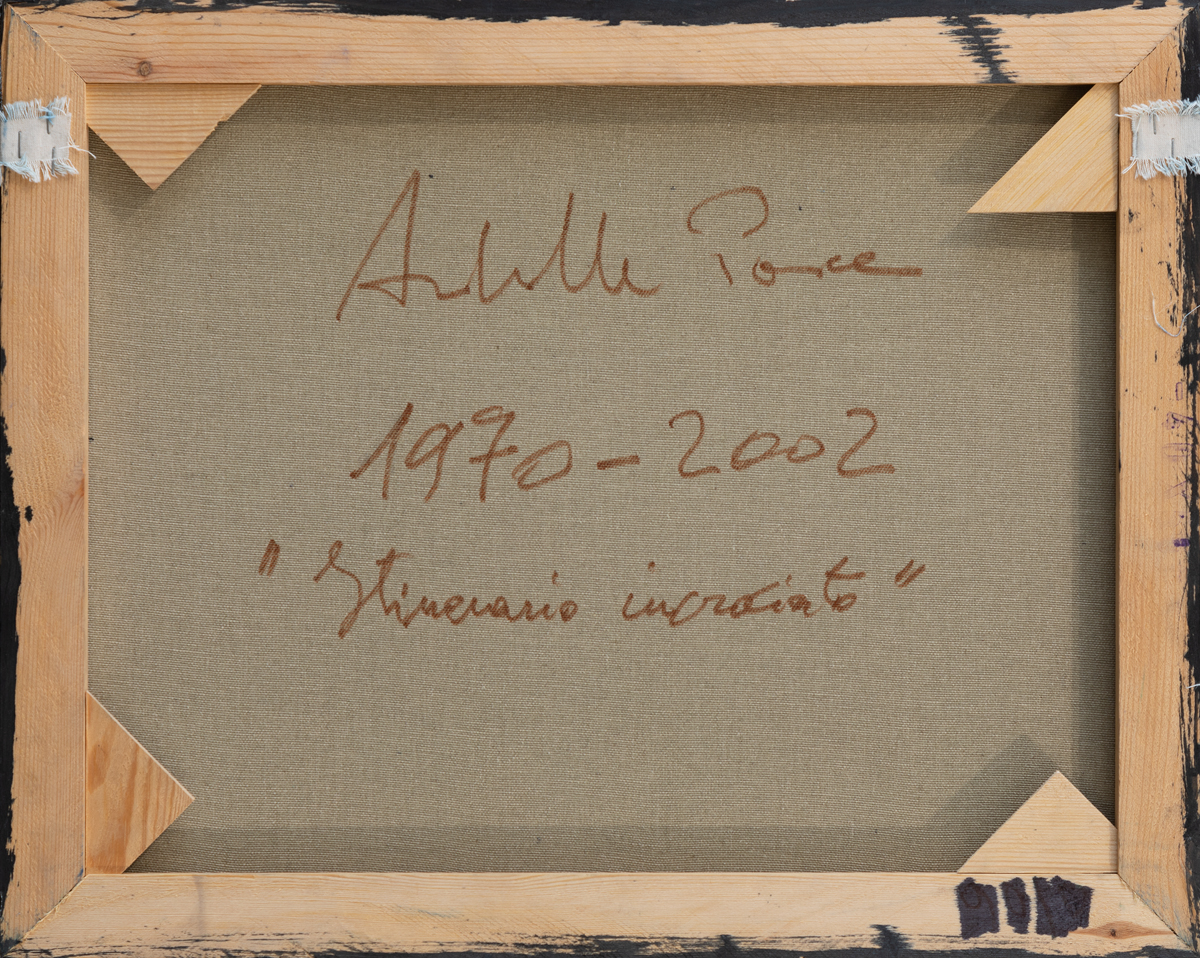 Achille Pace
1970-2002
"Itinerario incrociato"